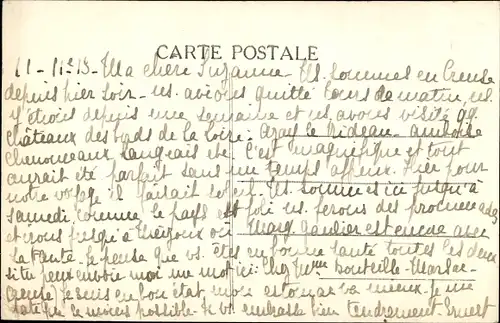 CARTE POSTALE
Ma chère Suzanne - Ns. sommes en Creuse
depuis hier soir - ns. avions quitté Tours ce matin, ns.
y étions depuis une semaine et ns. avons visité qq.
châteaux des bords de la Loire. Azay le Rideau - Amboise
Chenonceaux, Langeais etc. C'est magnifique et tout
aurait été parfait sans un temps affreux. Hier pour
notre voyage il faisait soleil. Ns. sommes ici jusqu'à
samedi, comme le pays est joli ns. ferons des promenades
et irons jusqu'à où Mary Gautier est encore avec
la tante. Je pense que vs. êtes en bonne santé toutes les deux
si tu peux envoie moi une mot ici: chez Bouteille - Marsac
(Creuse) Je suis en bon état, mon estomac va mieux. Je me
le moins possible. Je vs. embrasse bien tendrement. Ernest